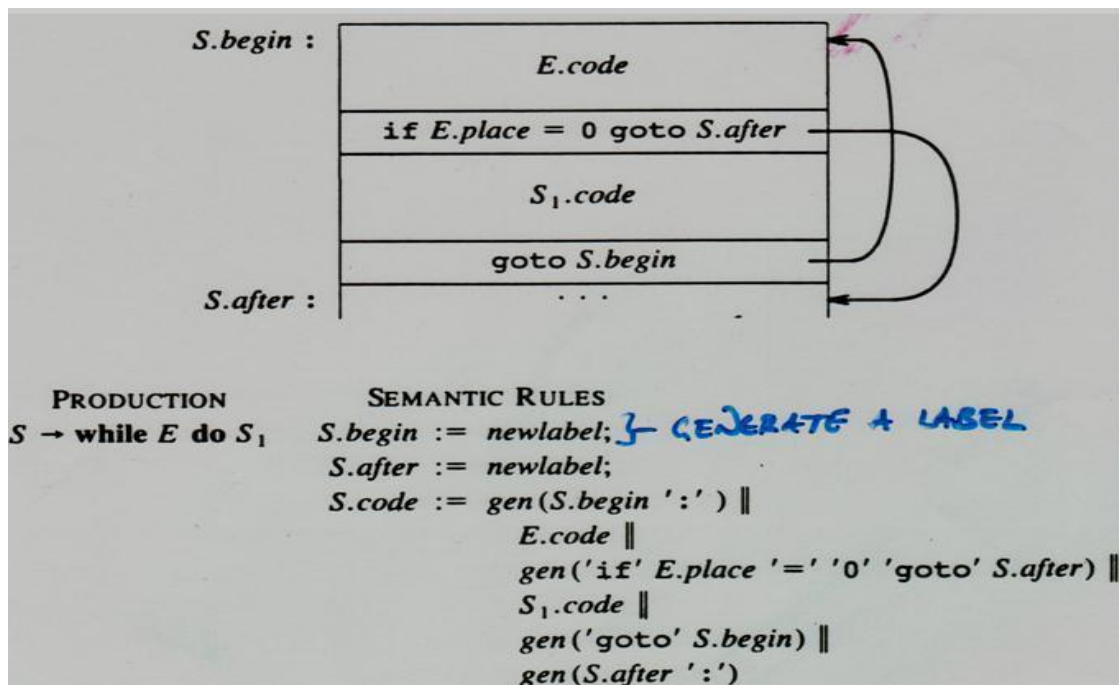 S.begin :
E.code
if E.place = 0 goto S.after
S₁.code
goto S.begin
S.after :
. . .
PRODUCTION SEMANTIC RULES
S → while E do S₁ S.begin := newlabel; }- GENERATE A LABEL
S.after := newlabel;
S.code := gen(S.begin ':') ||
E.code ||
gen('if' E.place '=' '0' 'goto' S.after) ||
S₁.code ||
gen('goto' S.begin) ||
gen(S.after ':')